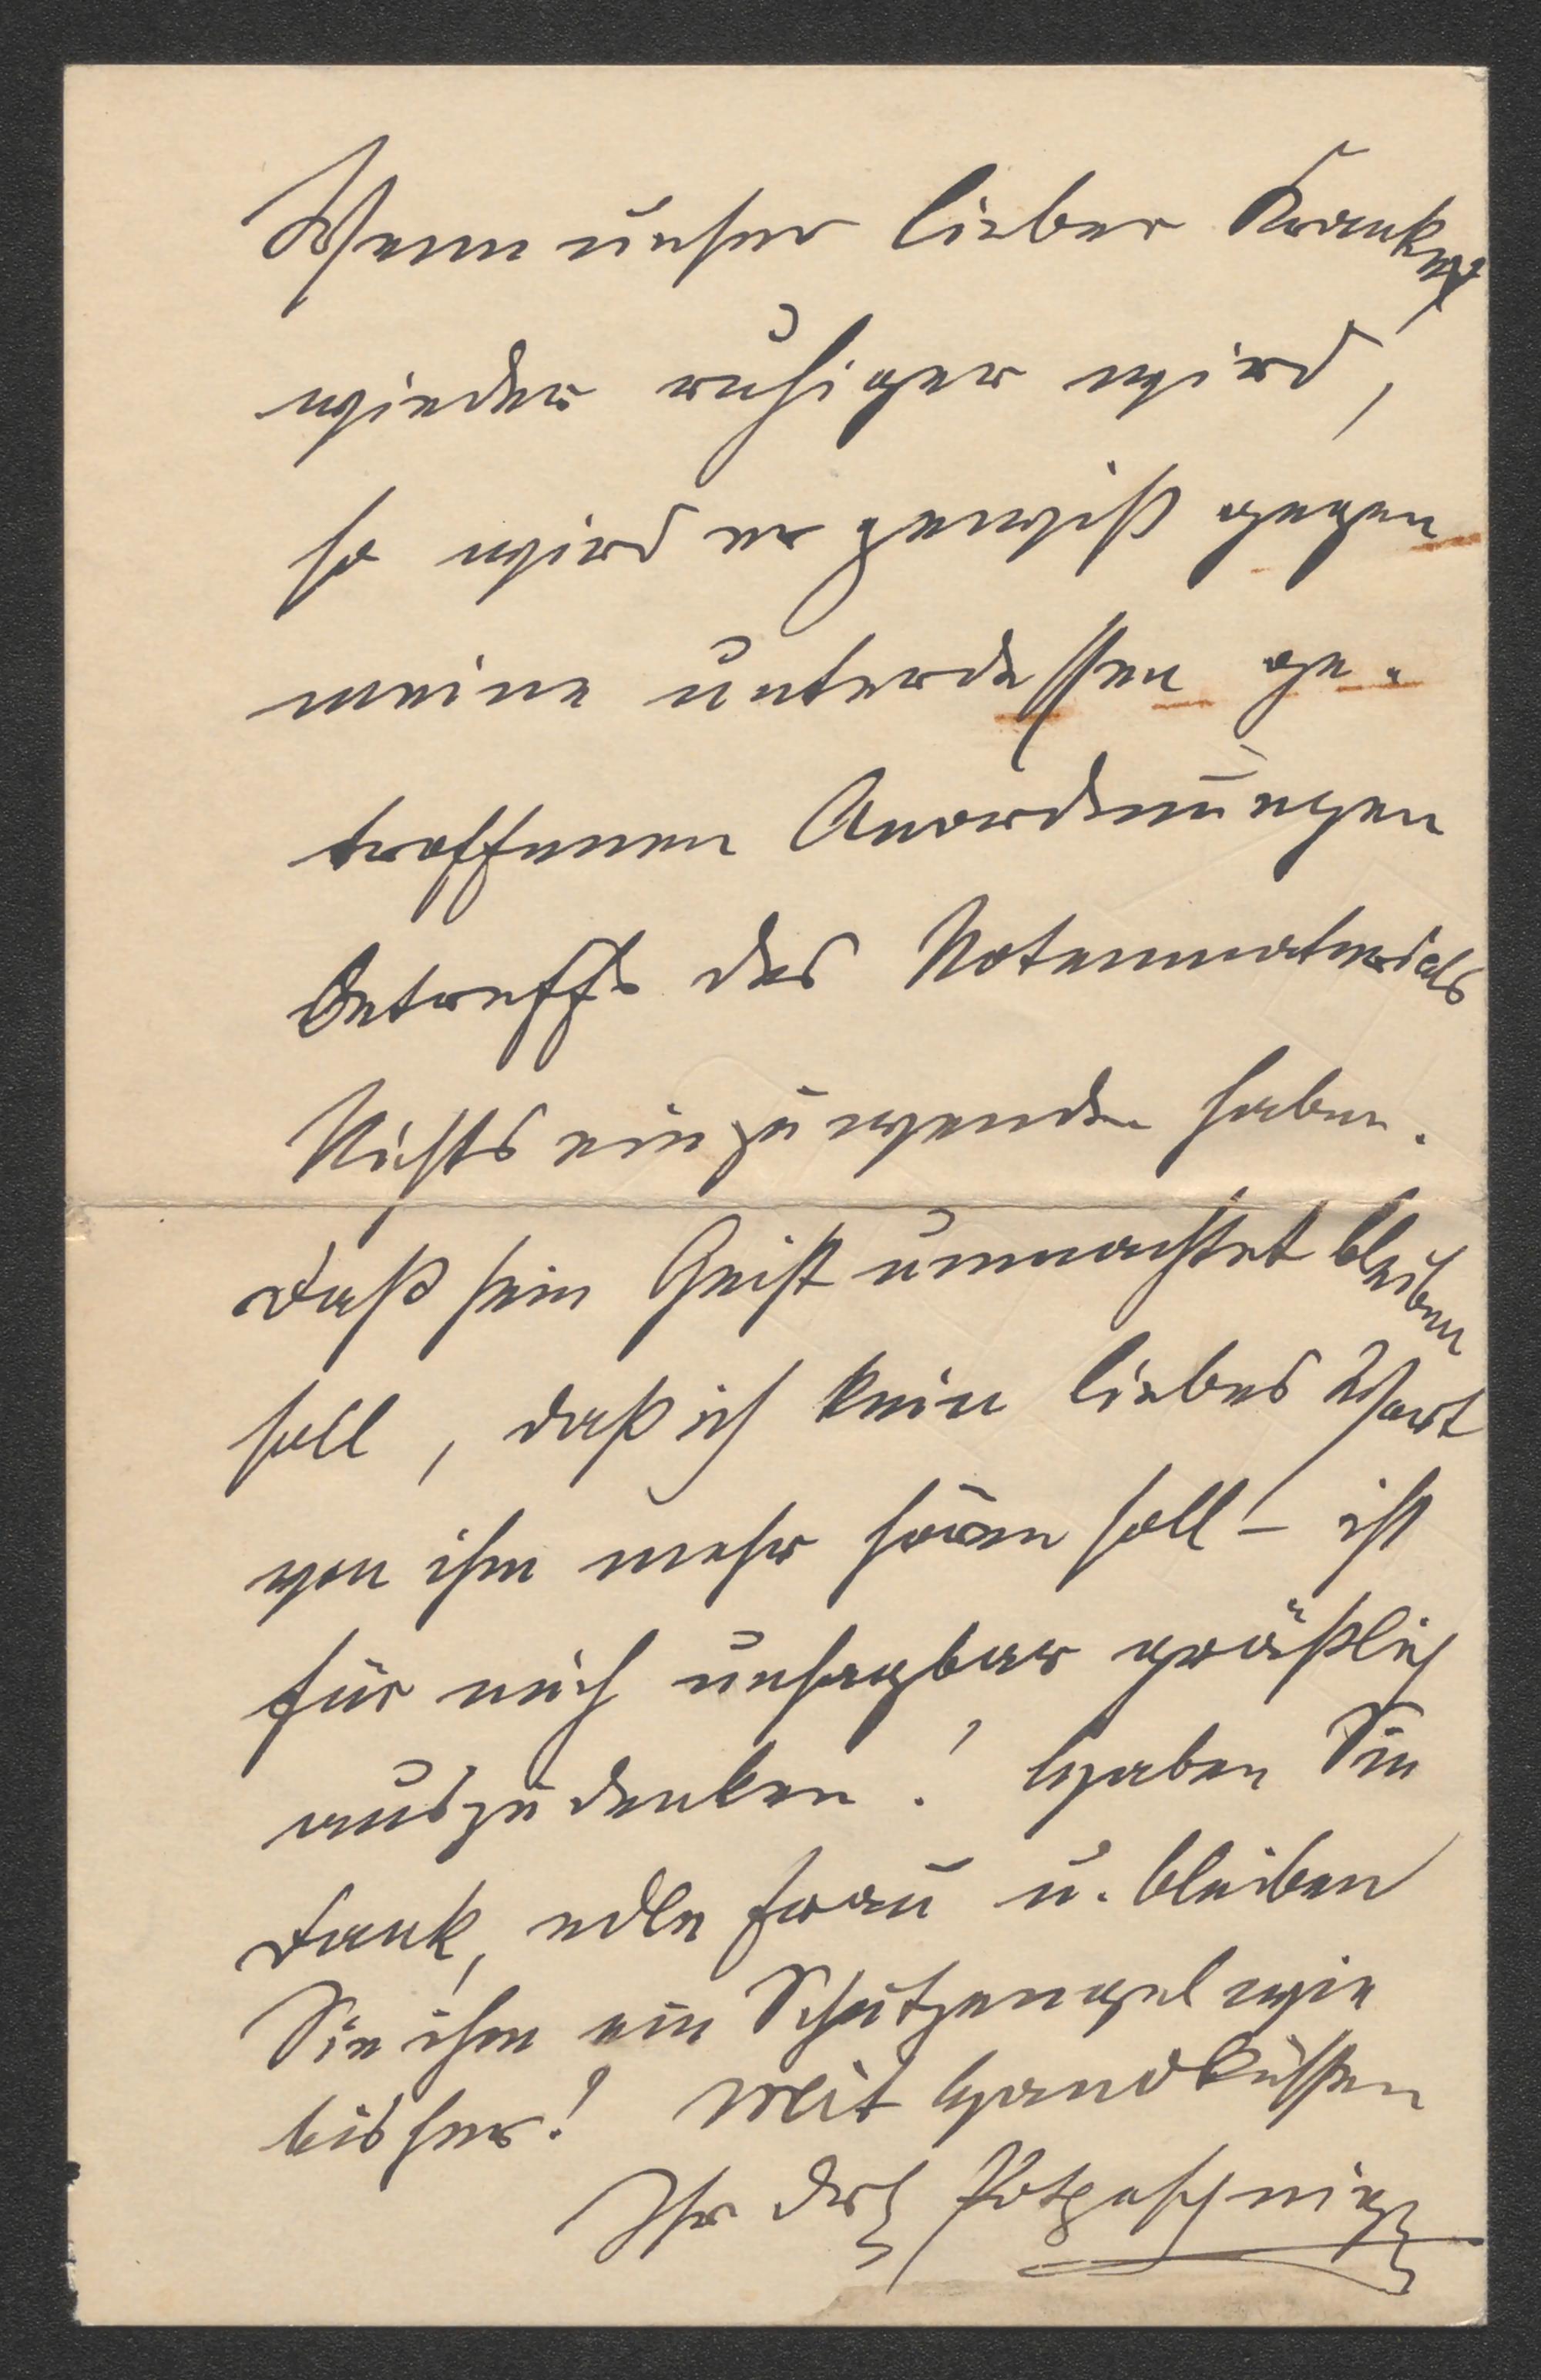 Wenn unser lieber Kranker
wieder ruhiger wird,
so wird er gewiß gegen
meine unterdessen ge-
troffenen Anordnungen
betreffs des Notenmaterials
Nichts einzuwenden haben.
Daß sein Geist umnachtet bleiben
soll, daß ich kein liebes Wort
von ihm mehr hören soll – ist
für mich unsagbar gräßlich
auszudenken! Haben Sie
Dank, edle Frau u. bleiben
Sie ihm ein Schutzengel wie
bisher! Mit Handküssen
Ihr Potpeschnigg